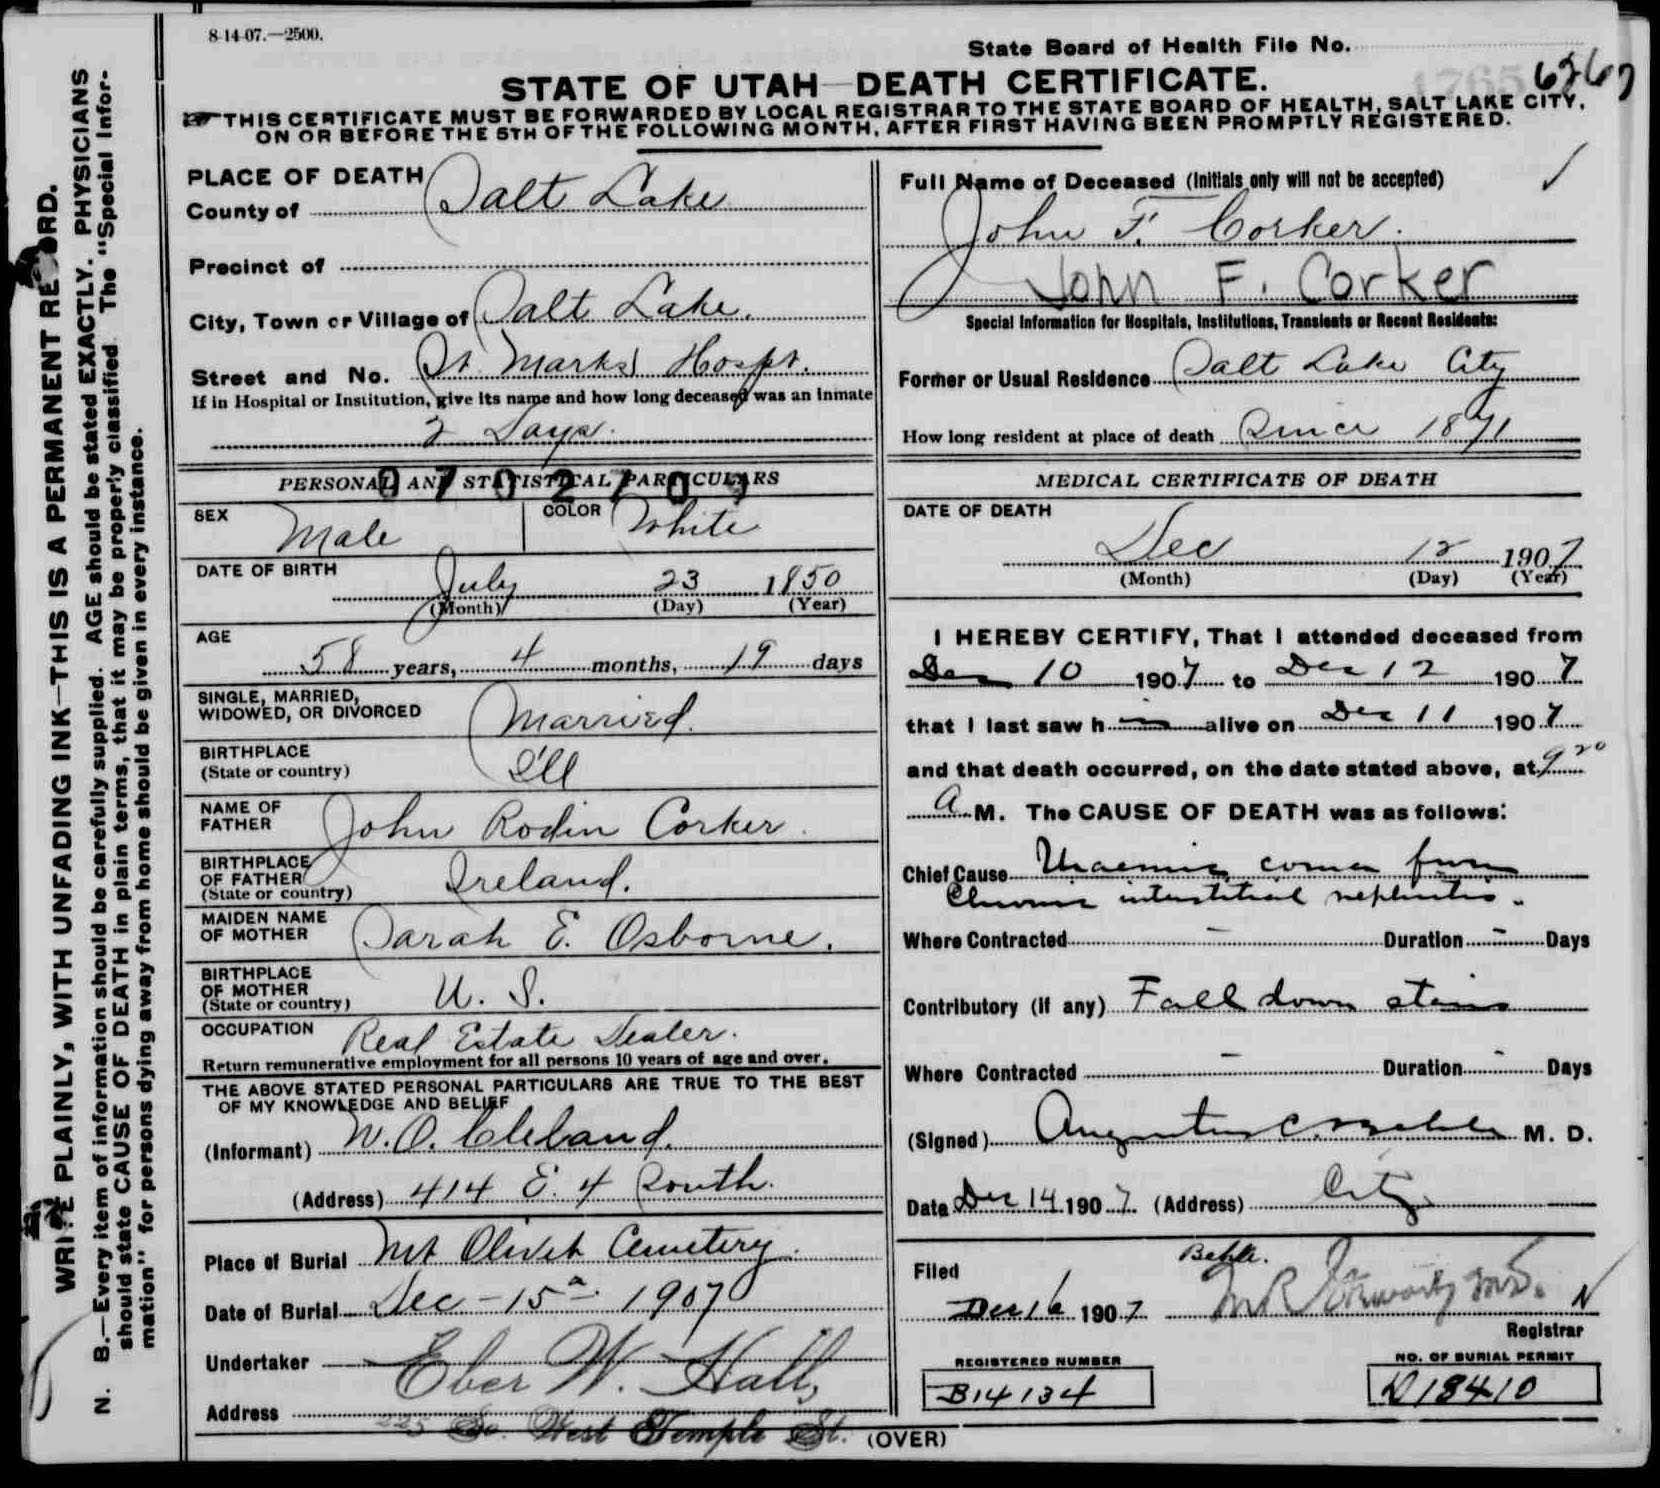 8-14-07.—2500.
State Board of Health File No.
6267
STATE OF UTAH—DEATH CERTIFICATE.
THIS CERTIFICATE MUST BE FORWARDED BY LOCAL REGISTRAR TO THE STATE BOARD OF HEALTH, SALT LAKE CITY,
ON OR BEFORE THE 5TH OF THE FOLLOWING MONTH, AFTER FIRST HAVING BEEN PROMPTLY REGISTERED.
WRITE PLAINLY, WITH UNFADING INK—THIS IS A PERMANENT RECORD.
N. B.—Every item of information should be carefully supplied. AGE should be stated EXACTLY. PHYSICIANS
should state CAUSE OF DEATH in plain terms, that it may be properly classified. The "Special Infor-
mation" for persons dying away from home should be given in every instance.
PLACE OF DEATH
County of Salt Lake
Precinct of
City, Town or Village of Salt Lake.
Street and No. St Marks Hospt.
If in Hospital or Institution, give its name and how long deceased was an Inmate
2 Days.
PERSONAL AND STATISTICAL PARTICULARS
0702709
SEX Male COLOR White
DATE OF BIRTH
July 23 1850
(Month) (Day) (Year)
AGE
58 years, 4 months, 19 days
SINGLE, MARRIED,
WIDOWED, OR DIVORCED Married.
BIRTHPLACE
(State or country) Ill
NAME OF
FATHER John Rodin Corker.
BIRTHPLACE
OF FATHER
(State or country) Ireland.
MAIDEN NAME
OF MOTHER Sarah E. Osborne.
BIRTHPLACE
OF MOTHER
(State or country) U. S.
OCCUPATION Real Estate Dealer.
Return remunerative employment for all persons 10 years of age and over.
THE ABOVE STATED PERSONAL PARTICULARS ARE TRUE TO THE BEST
OF MY KNOWLEDGE AND BELIEF
(Informant) W. O. Cleland.
(Address) 414 E. 4 South.
Place of Burial Mt Olivet Cemetery.
Date of Burial Dec - 15 1907
Undertaker Eber W. Hall,
Address 225 So. West Temple St.
(OVER)
Full Name of Deceased (Initials only will not be accepted)
John F. Corker.
John F. Corker
Special Information for Hospitals, Institutions, Transients or Recent Residents:
Former or Usual Residence Salt Lake City
How long resident at place of death Since 1871
MEDICAL CERTIFICATE OF DEATH
DATE OF DEATH
Dec 12 1907
(Month) (Day) (Year)
I HEREBY CERTIFY, That I attended deceased from
Dec 10 1907 to Dec 12 1907
that I last saw h im alive on Dec 11 1907
and that death occurred, on the date stated above, at 9 20
A M. The CAUSE OF DEATH was as follows:
Chief Cause Uraemic coma from
Chronic interstitial nephritis.
Where Contracted - Duration - Days
Contributory (if any) Fall down stairs
Where Contracted - Duration - Days
(Signed) Augustus C. Behle M. D.
Date Dec 14 1907 (Address) City
Behle.
Filed
Dec 16 1907
Registrar
REGISTERED NUMBER
B14134
NO. OF BURIAL PERMIT
D18410